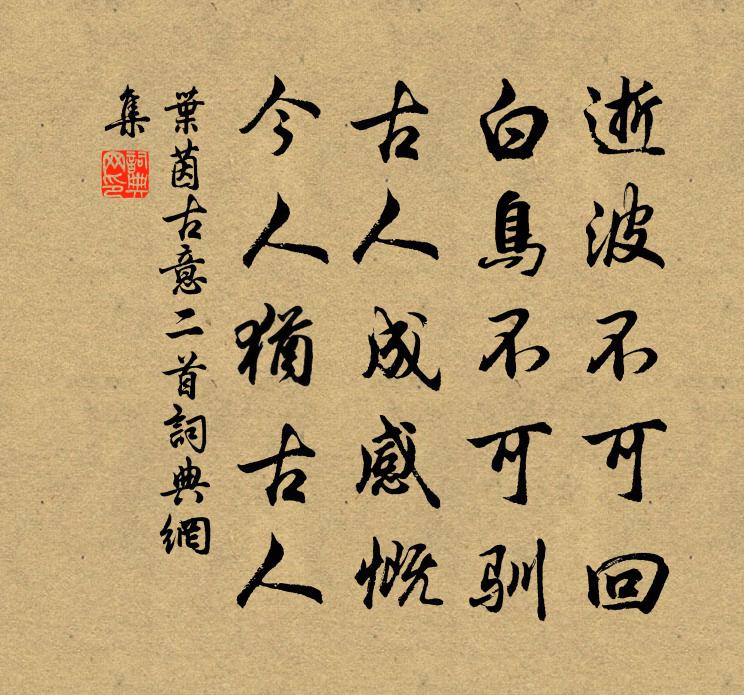 逝波不可回
白鳥不可馴
古人成感慨
今人猶古人
葉茵古意二首詞典網
集
詞典網印